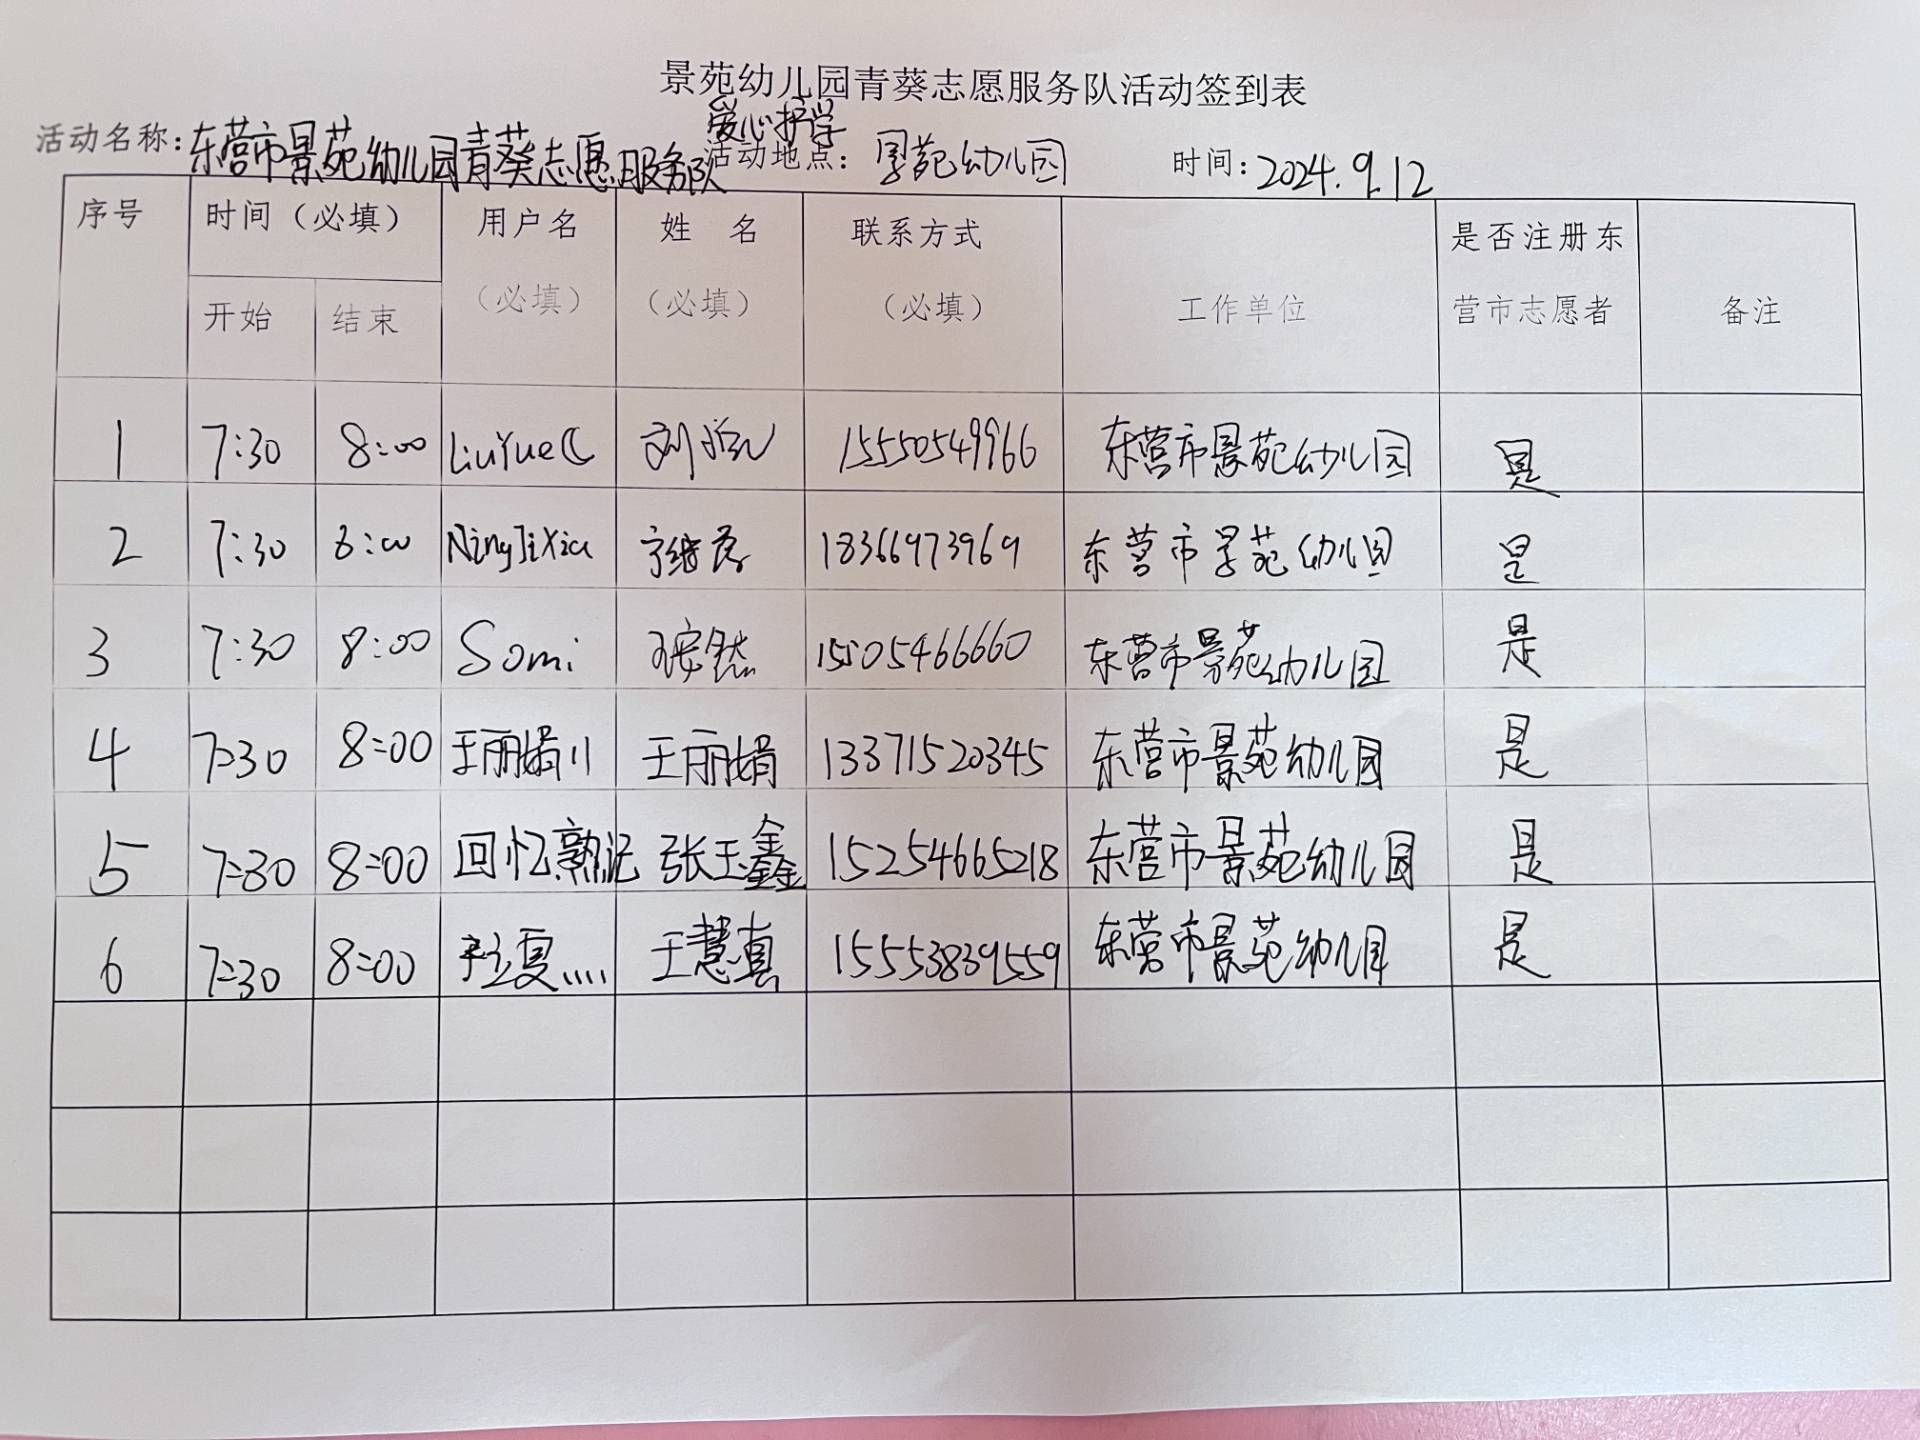 景苑幼儿园青葵志愿服务队活动签到表
爱心护学
活动名称:东营市景苑幼儿园青葵志愿服务队 活动地点: 景苑幼儿园 时间:2024.9.12
序号 时间（必填） 用户名 姓 名 联系方式 是否注册东
（必填） （必填） （必填） 工作单位 营市志愿者 备注
开始 结束
1 7:30 8:00 LiuYue 刘 15550549966 东营市景苑幼儿园 是
2 7:30 8:00 NingJiXia 宁继霞 18366973969 东营市景苑幼儿园 是
3 7:30 8:00 Somi 15505466660 东营市景苑幼儿园 是
4 7:30 8:00 王丽娟11 王丽娟 13371520345 东营市景苑幼儿园 是
5 7:30 8:00 回忆熟记 张玉鑫 15254665218 东营市景苑幼儿园 是
6 7:30 8:00 夏.... 王慧真 15553839559 东营市景苑幼儿园 是